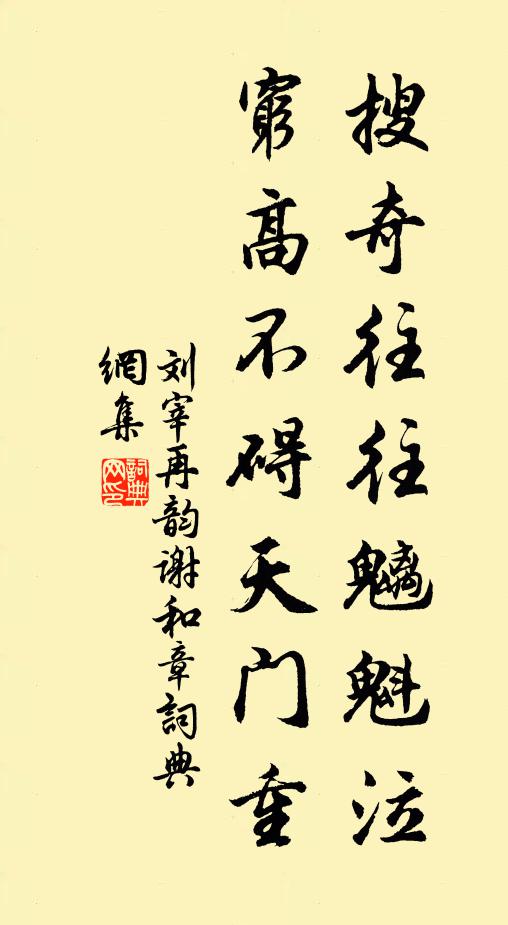 搜奇往往魑魁泣
窮高不碍天门重
刘宰再韵谢和章詞典
網集
詞典网印